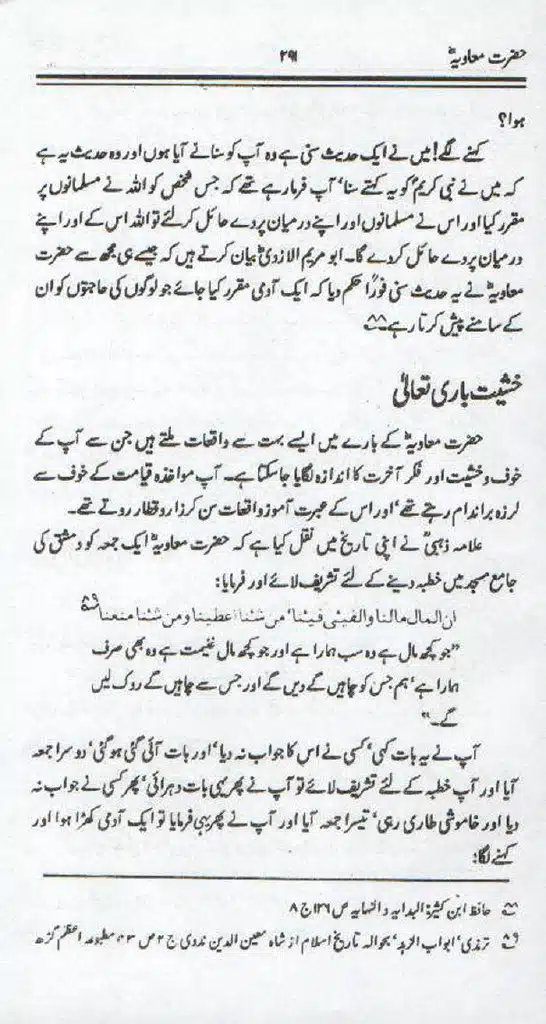 حضرت معاویہؓ ۲۹۱
ہوا؟
کہنے لگے! میں نے ایک حدیث سنی ہے وہ آپ کو سنانے آیا ہوں اور وہ حدیث یہ ہے
کہ میں نے نبی کریمؐ کو یہ کہتے سنا' آپ فرما رہے تھے کہ جس شخص کو اللہ نے مسلمانوں پر
مقرر کیا اور اس نے مسلمانوں اور اپنے درمیان پردے حائل کر لئے تو اللہ اس کے اور اپنے
درمیان پردے حائل کر دے گا۔ ابو مریم الازدیؓ بیان کرتے ہیں کہ جیسے ہی مجھ سے حضرت
معاویہؓ نے یہ حدیث سنی فوراً حکم دیا کہ ایک آدمی مقرر کیا جائے جو لوگوں کی حاجتوں کو ان
کے سامنے پیش کرتا رہے۔ ۸۸
خشیت باری تعالیٰ
حضرت معاویہؓ کے بارے میں ایسے بہت سے واقعات ملتے ہیں جن سے آپ کے
خوف و خشیت اور فکر آخرت کا اندازہ لگایا جا سکتا ہے۔ آپ مواخذہ قیامت کے خوف سے
لرزہ براندام رہتے تھے' اور اس کے عبرت آموز واقعات سن کر زار و قطار روتے تھے۔
علامہ ذہبیؒ نے اپنی تاریخ میں نقل کیا ہے کہ حضرت معاویہؓ ایک جمعہ کو دمشق کی
جامع مسجد میں خطبہ دینے کے لئے تشریف لائے اور فرمایا:
ان المال مالنا والفیئی فیئنا' من شئنا اعطینا و من شئنا منعنا ۸۹
"جو کچھ مال ہے وہ سب ہمارا ہے اور جو کچھ مال غنیمت ہے وہ بھی صرف
ہمارا ہے' ہم جس کو چاہیں گے دیں گے اور جس سے چاہیں گے روک لیں
گے۔"
آپ نے یہ بات کہی' کسی نے اس کا جواب نہ دیا' اور بات آئی گئی ہو گئی' دوسرا جمعہ
آیا اور آپ خطبہ کے لئے تشریف لائے تو آپ نے پھر یہی بات دہرائی' پھر کسی نے جواب نہ
دیا اور خاموشی طاری رہی' تیسرا جمعہ آیا اور آپ نے پھر یہی فرمایا تو ایک آدمی کھڑا ہوا اور
کہنے لگا:
۸۸ حافظ ابن کثیرؒ: البدایہ والنہایہ ص ۱۲۶ ج ۸
۸۹ ترمذی' ابواب الزہد' بحوالہ تاریخ اسلام از شاہ معین الدین ندوی ج ۲ ص ۴۳ مطبوعہ اعظم گڑھ